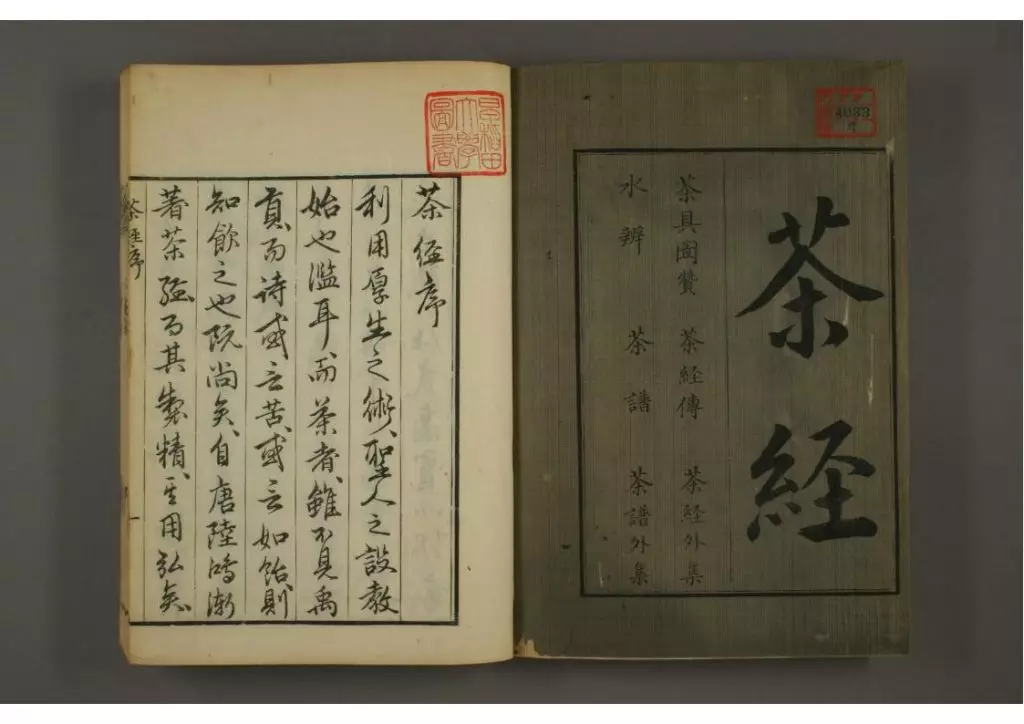 茶経
茶具圖賛 茶経傳 茶経外集
水辨 茶譜 茶譜外集
4033
茶経序
利用厚生之術、聖人之設教
始也濫耳、而茶者、雖不見禹
貢、而詩或言苦、或言如飴、則
知飲之也既尚矣、自唐陸鴻漸
著茶経、而其製精、其用弘矣、
茶経序
一